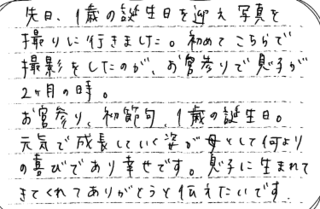 先日、1歳の誕生日を迎え写真を
撮りに行きました。初めてこちらで
撮影をしたのが、お宮参りで息子が
2ヶ月の時。
お宮参り、初節句、1歳の誕生日。
元気で成長していく姿が母として何より
の喜びであり幸せです。息子に生まれて
きてくれてありがとうと伝えたいです。